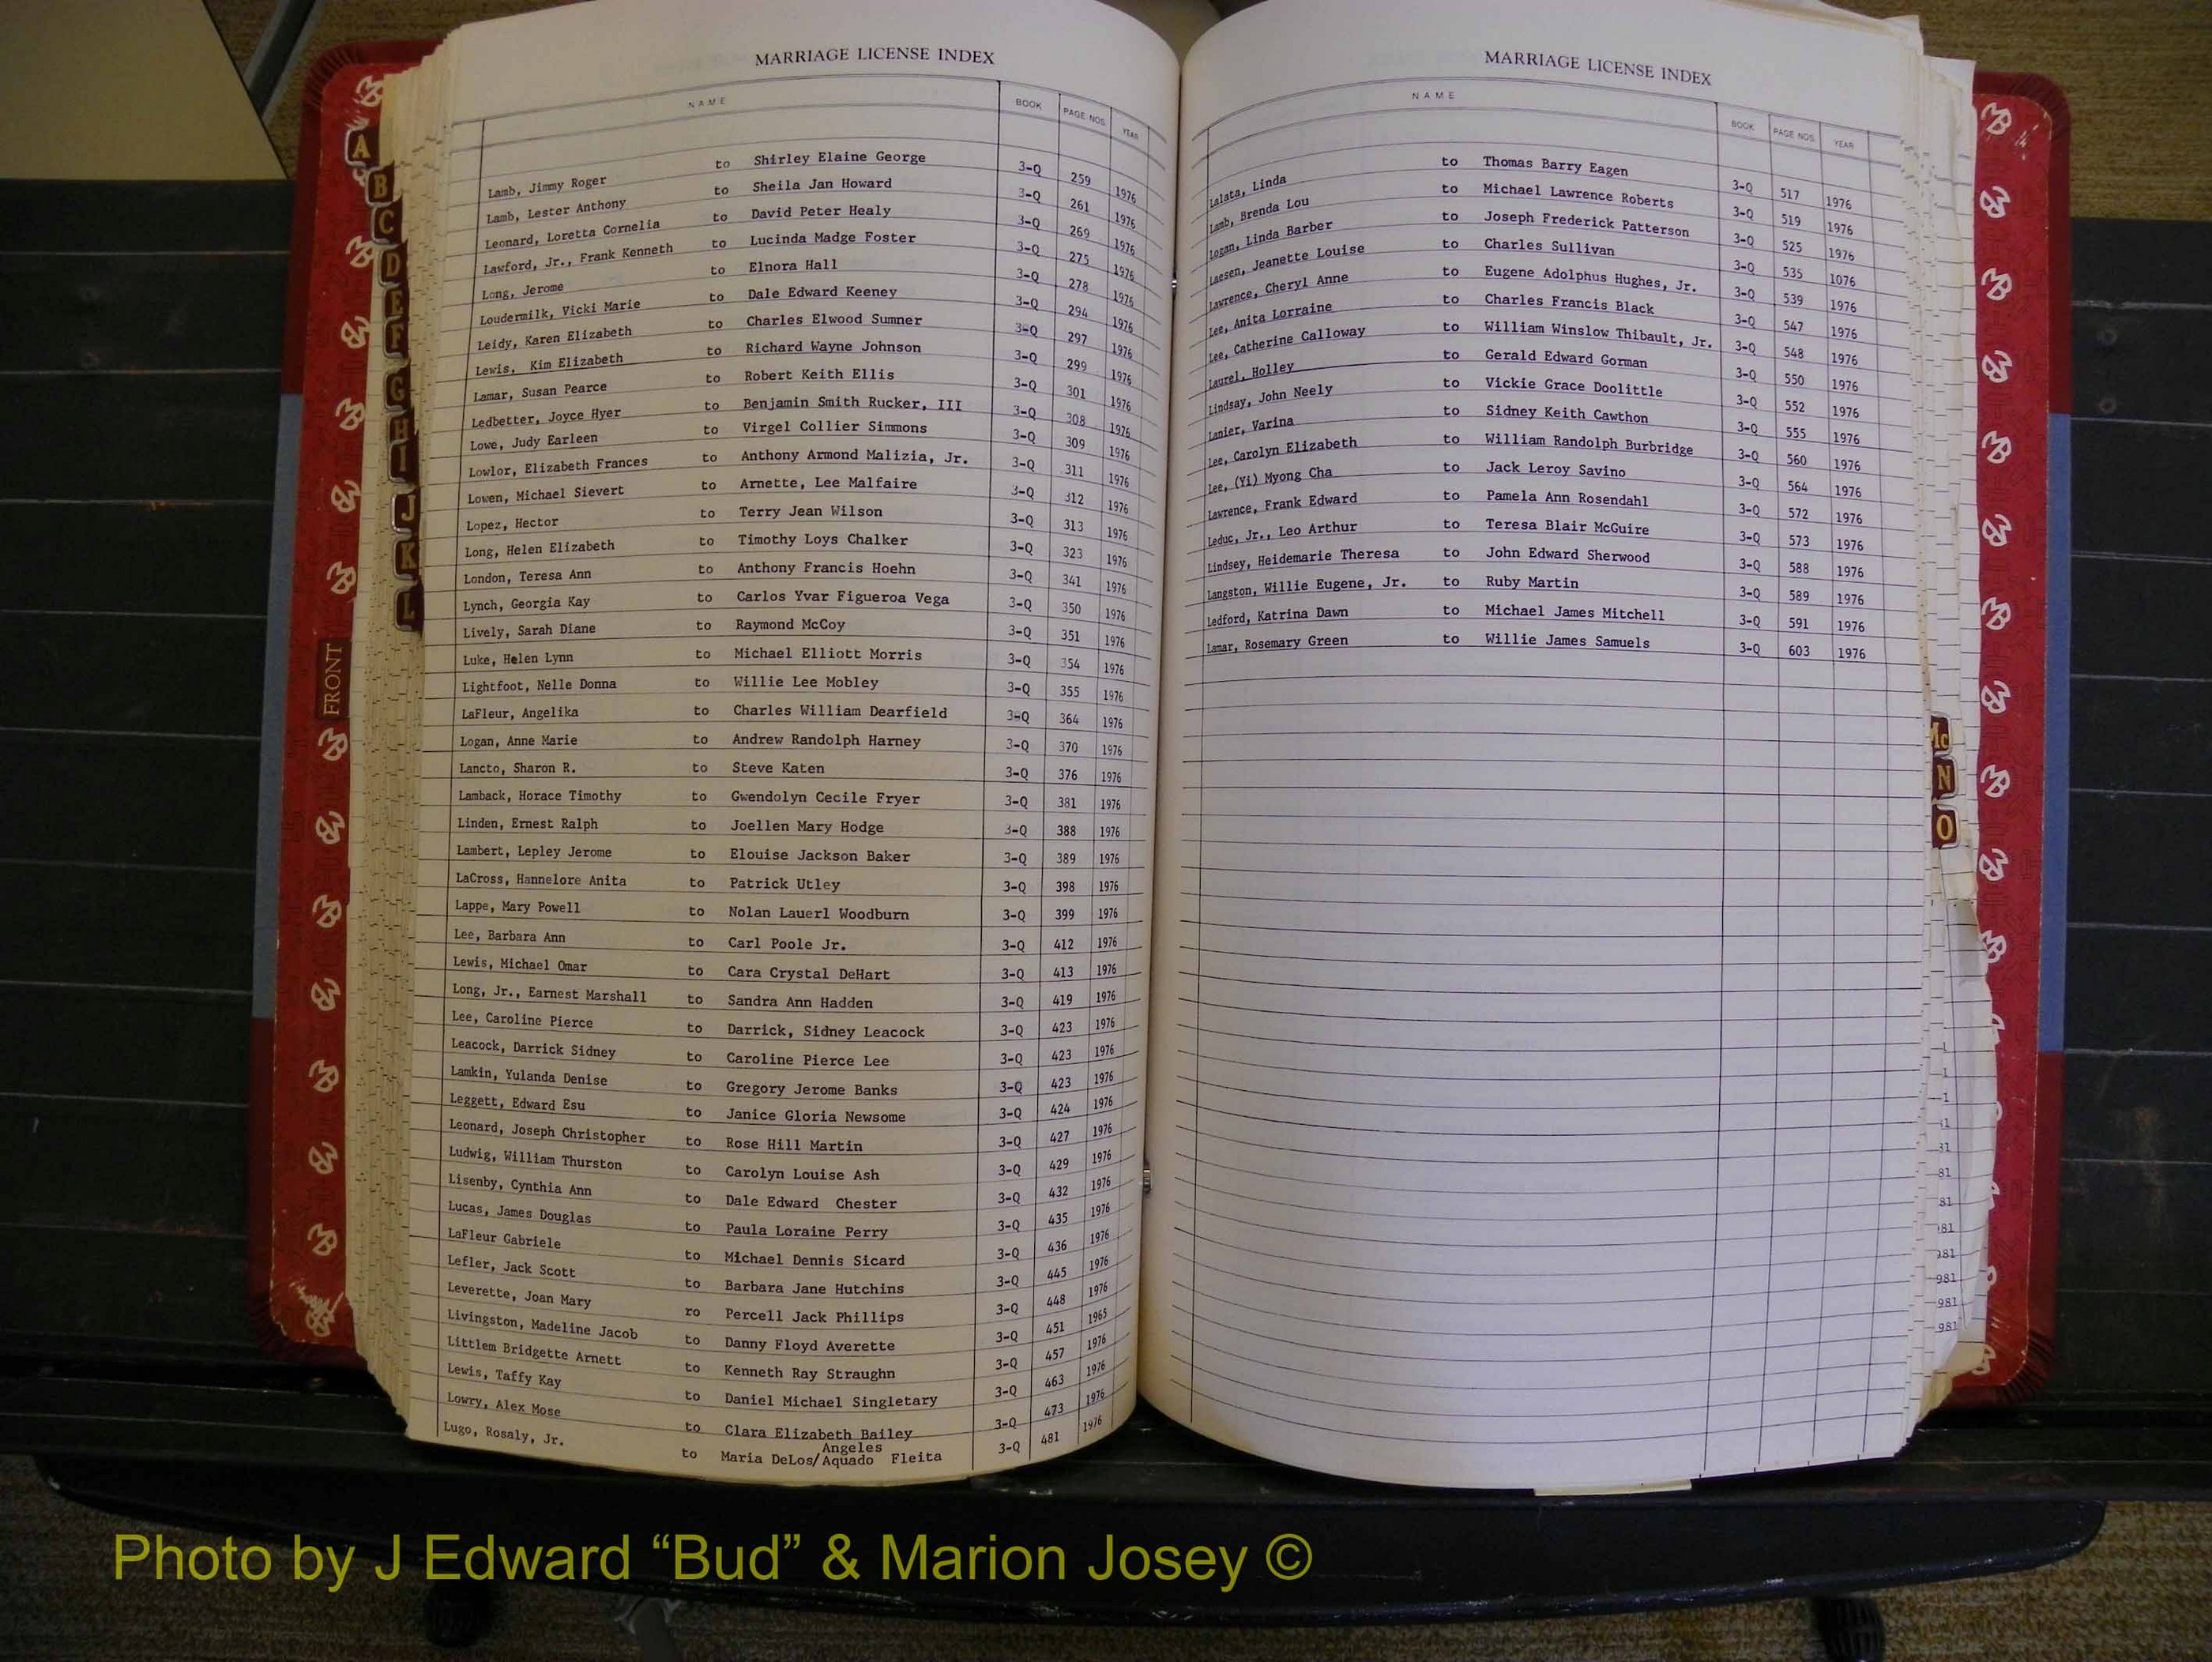 MARRIAGE LICENSE INDEX
NAME BOOK PAGE NOS. YEAR
Lamb, Jimmy Roger to Shirley Elaine George 3-Q 259 1976
Lamb, Lester Anthony to Sheila Jan Howard 3-Q 261 1976
Leonard, Loretta Cornelia to David Peter Healy 3-Q 269 1976
Lawford, Jr., Frank Kenneth to Lucinda Madge Foster 3-Q 275 1976
Long, Jerome to Elnora Hall 3-Q 278 1976
Loudermilk, Vicki Marie to Dale Edward Keeney 3-Q 294 1976
Leidy, Karen Elizabeth to Charles Elwood Sumner 3-Q 297 1976
Lewis, Kim Elizabeth to Richard Wayne Johnson 3-Q 299 1976
Lamar, Susan Pearce to Robert Keith Ellis 3-Q 301 1976
Ledbetter, Joyce Hyer to Benjamin Smith Rucker, III 3-Q 308 1976
Lowe, Judy Earleen to Virgel Collier Simmons 3-Q 309 1976
Lowlor, Elizabeth Frances to Anthony Armond Malizia, Jr. 3-Q 311 1976
Lowen, Michael Sievert to Arnette, Lee Malfaire 3-Q 312 1976
Lopez, Hector to Terry Jean Wilson 3-Q 313 1976
Long, Helen Elizabeth to Timothy Loys Chalker 3-Q 323 1976
London, Teresa Ann to Anthony Francis Hoehn 3-Q 341 1976
Lynch, Georgia Kay to Carlos Yvar Figueroa Vega 3-Q 350 1976
Lively, Sarah Diane to Raymond McCoy 3-Q 351 1976
Luke, Helen Lynn to Michael Elliott Morris 3-Q 354 1976
Lightfoot, Nelle Donna to Willie Lee Mobley 3-Q 355 1976
LaFleur, Angelika to Charles William Dearfield 3-Q 364 1976
Logan, Anne Marie to Andrew Randolph Harney 3-Q 370 1976
Lancto, Sharon R. to Steve Katen 3-Q 376 1976
Lamback, Horace Timothy to Gwendolyn Cecile Fryer 3-Q 381 1976
Linden, Ernest Ralph to Joellen Mary Hodge 3-Q 388 1976
Lambert, Lepley Jerome to Elouise Jackson Baker 3-Q 389 1976
LaCross, Hannelore Anita to Patrick Utley 3-Q 398 1976
Lappe, Mary Powell to Nolan Lauerl Woodburn 3-Q 399 1976
Lee, Barbara Ann to Carl Poole Jr. 3-Q 412 1976
Lewis, Michael Omar to Cara Crystal DeHart 3-Q 413 1976
Long, Jr., Earnest Marshall to Sandra Ann Hadden 3-Q 419 1976
Lee, Caroline Pierce to Darrick, Sidney Leacock 3-Q 423 1976
Leacock, Darrick Sidney to Caroline Pierce Lee 3-Q 423 1976
Lamkin, Yulanda Denise to Gregory Jerome Banks 3-Q 423 1976
Leggett, Edward Esu to Janice Gloria Newsome 3-Q 424 1976
Leonard, Joseph Christopher to Rose Hill Martin 3-Q 427 1976
Ludwig, William Thurston to Carolyn Louise Ash 3-Q 429 1976
Lisenby, Cynthia Ann to Dale Edward Chester 3-Q 432 1976
Lucas, James Douglas to Paula Loraine Perry 3-Q 435 1976
LaFleur Gabriele to Michael Dennis Sicard 3-Q 436 1976
Lefler, Jack Scott to Barbara Jane Hutchins 3-Q 445 1976
Leverette, Joan Mary ro Percell Jack Phillips 3-Q 448 1976
Livingston, Madeline Jacob to Danny Floyd Averette 3-Q 451 1965
Littlem Bridgette Arnett to Kenneth Ray Straughn 3-Q 457 1976
Lewis, Taffy Kay to Daniel Michael Singletary 3-Q 463 1976
Lowry, Alex Mose to Clara Elizabeth Bailey 3-Q 473 1976
Angeles
Lugo, Rosaly, Jr. to Maria DeLos/Aquado Fleita 3-Q 481 1976
MARRIAGE LICENSE INDEX
NAME BOOK PAGE NOS. YEAR
Lalata, Linda to Thomas Barry Eagen 3-Q 517 1976
Lamb, Brenda Lou to Michael Lawrence Roberts 3-Q 519 1976
Logan, Linda Barber to Joseph Frederick Patterson 3-Q 525 1976
Laesen, Jeanette Louise to Charles Sullivan 3-Q 535 1076
Lawrence, Cheryl Anne to Eugene Adolphus Hughes, Jr. 3-Q 539 1976
Lee, Anita Lorraine to Charles Francis Black 3-Q 547 1976
Lee, Catherine Calloway to William Winslow Thibault, Jr. 3-Q 548 1976
Laurel, Holley to Gerald Edward Gorman 3-Q 550 1976
Lindsay, John Neely to Vickie Grace Doolittle 3-Q 552 1976
Lanier, Varina to Sidney Keith Cawthon 3-Q 555 1976
Lee, Carolyn Elizabeth to William Randolph Burbridge 3-Q 560 1976
Lee, (Yi) Myong Cha to Jack Leroy Savino 3-Q 564 1976
Lawrence, Frank Edward to Pamela Ann Rosendahl 3-Q 572 1976
Leduc, Jr., Leo Arthur to Teresa Blair McGuire 3-Q 573 1976
Lindsey, Heidemarie Theresa to John Edward Sherwood 3-Q 588 1976
Langston, Willie Eugene, Jr. to Ruby Martin 3-Q 589 1976
Ledford, Katrina Dawn to Michael James Mitchell 3-Q 591 1976
Lamar, Rosemary Green to Willie James Samuels 3-Q 603 1976
A
B
C
D
E
F
G
H
I
J
K
L
FRONT
Mc
N
O
1
1
1
81
81
81
81
981
981
981
Photo by J Edward “Bud” & Marion Josey ©